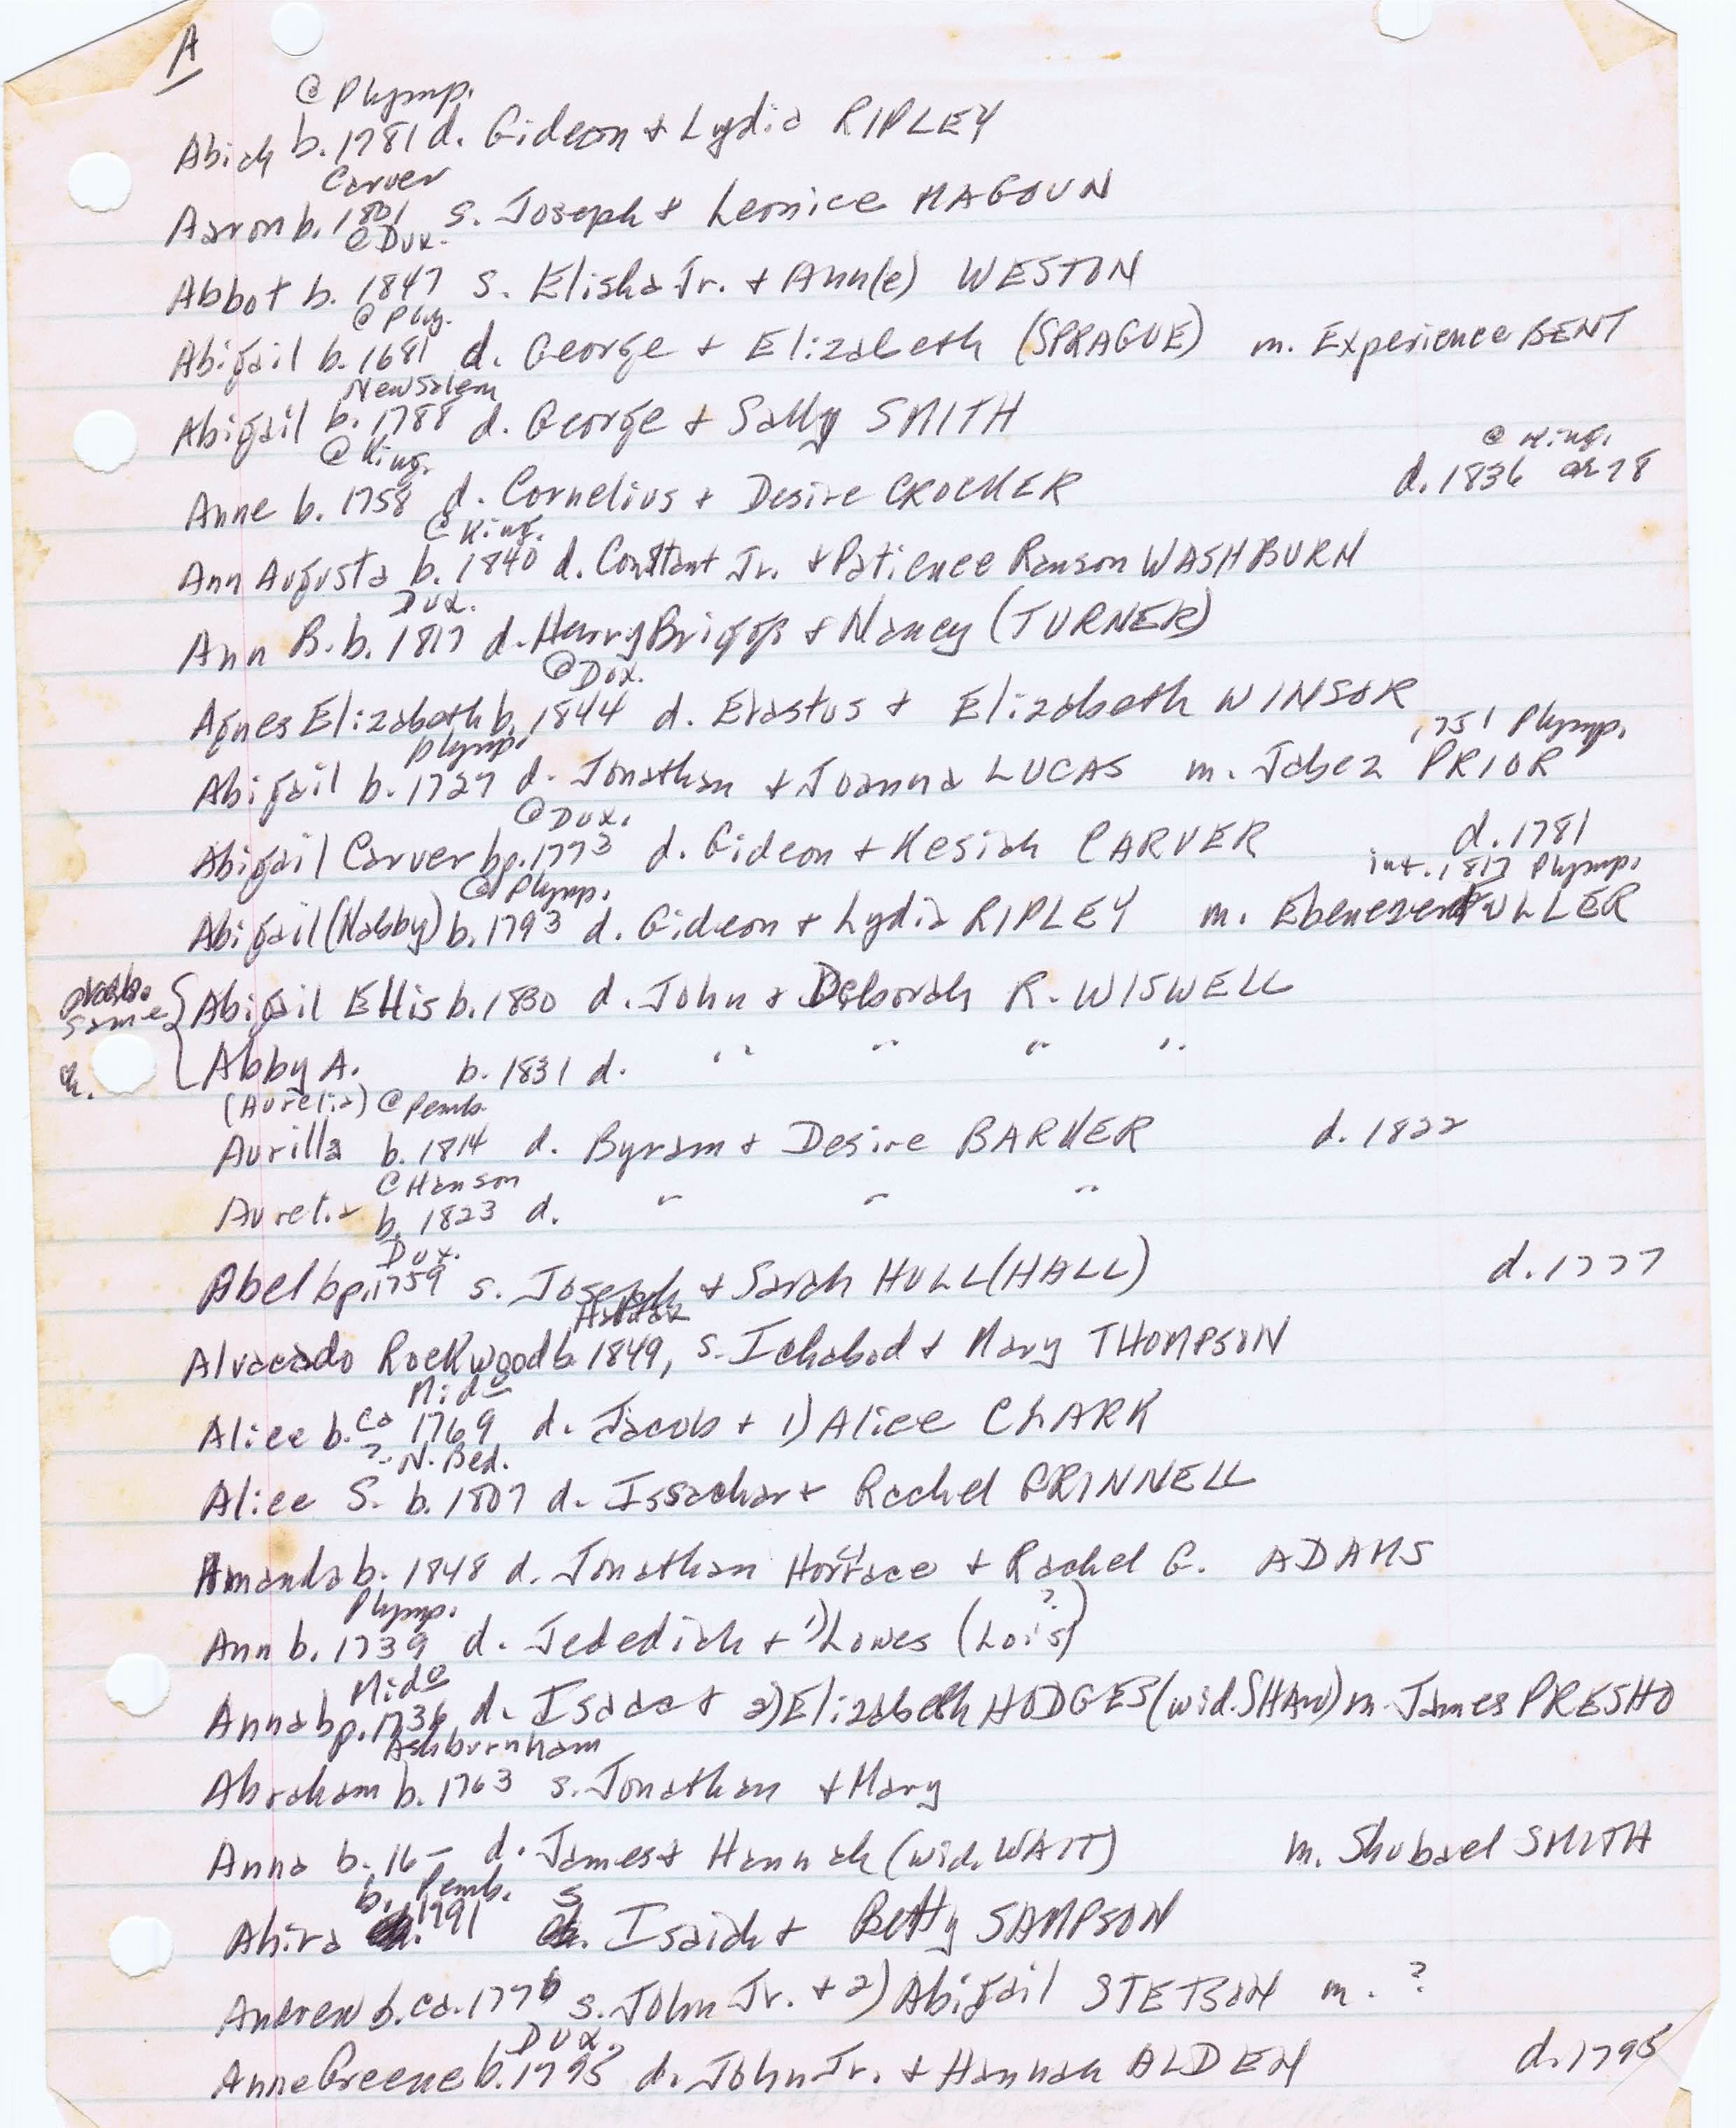 A
@ Plymp.
Abiah b. 1781 d. Gideon + Lydia RIPLEY
Carver
Aaron b. 1801 s. Joseph + Leonice MAGOUN
@ Dux.
Abbot b. 1847 s. Elisha Jr. + Ann(e) WESTON
@ Ply.
Abigail b. 1681 d. George + Elizabeth (SPRAGUE) m. Experience BENT
New Salem
Abigail b. 1788 d. George + Sally SMITH
@ King. @ King.
Anne b. 1758 d. Cornelius + Desire CROCKER d. 1836 ae 78
@ King.
Ann Augusta b. 1840 d. Constant Jr. + Patience Ranson WASHBURN
Dux.
Ann B. b. 1817 d. Henry Briggs + Nancy (TURNER)
@ Dux.
Agnes Elizabeth b. 1844 d. Erastus + Elizabeth WINSOR
Plymp. 1751 Plymp.
Abigail b. 1727 d. Jonathan + Joanna LUCAS m. Jabez PRIOR
@ Dux.
Abigail Carver bp. 1773 d. Gideon + Kesiah CARVER d. 1781
@ Plymp. int. 1817 Plymp.
Abigail (Nabby) b. 1793 d. Gideon + Lydia RIPLEY m. Ebenezer FULLER
prob.
same { Abigail Ellis b. 1830 d. John + Deborah R. WISWELL
ch. Abby A. b. 1831 d. " " " "
(Aurelia) @ Pemb.
Aurilla b. 1814 d. Byram + Desire BARKER d. 1822
@ Hanson
Aurelia b. 1823 d. " " "
Dux.
Abel bp. 1759 s. Joseph + Sarah HULL (HALL) d. 1777
Alvacado Rockwood b. 1849, s. Ichabod + Mary THOMPSON
Mido
Alice b. ca 1769 d. Jacob + 1) Alice CLARK
?- N. Bed.
Alice S. b. 1807 d. Issachar + Rachel GRINNELL
Amanda b. 1848 d. Jonathan Horrace + Rachel G. ADAMS
Plymp. ?
Ann b. 1739 d. Jedediah + 1) Lowes (Lois)
Mido
Anna bp. 1736 d. Isaac + 2) Elizabeth HODGES (wid. SHAW) m. James PRESHO
Ashburnham
Abraham b. 1763 s. Jonathan + Mary
Anna b. 16- d. James + Hannah (wid. WAIT) m. Shubael SMITH
Pemb.
Ahira b. 1791 s. Isaiah + Betty SAMPSON
Andrew b. ca. 1776 s. John Jr. + 2) Abigail STETSON m. ?
Dux.
Anne Greene b. 1795 d. John Jr. + Hannah ALDEN d. 1795